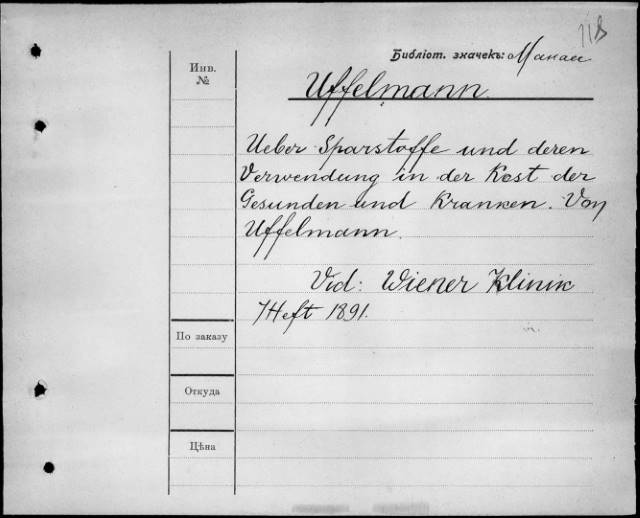 118
Библіот. значекъ:
Инв.
№
Uffelmann.
Ueber Sparstoffe und deren
Verwendung in der Kost der
Gesunden und Kranken. Von
Uffelmann.
Vid: Wiener Klinik
7 Heft 1891.
По заказу
Откуда
Цѣна